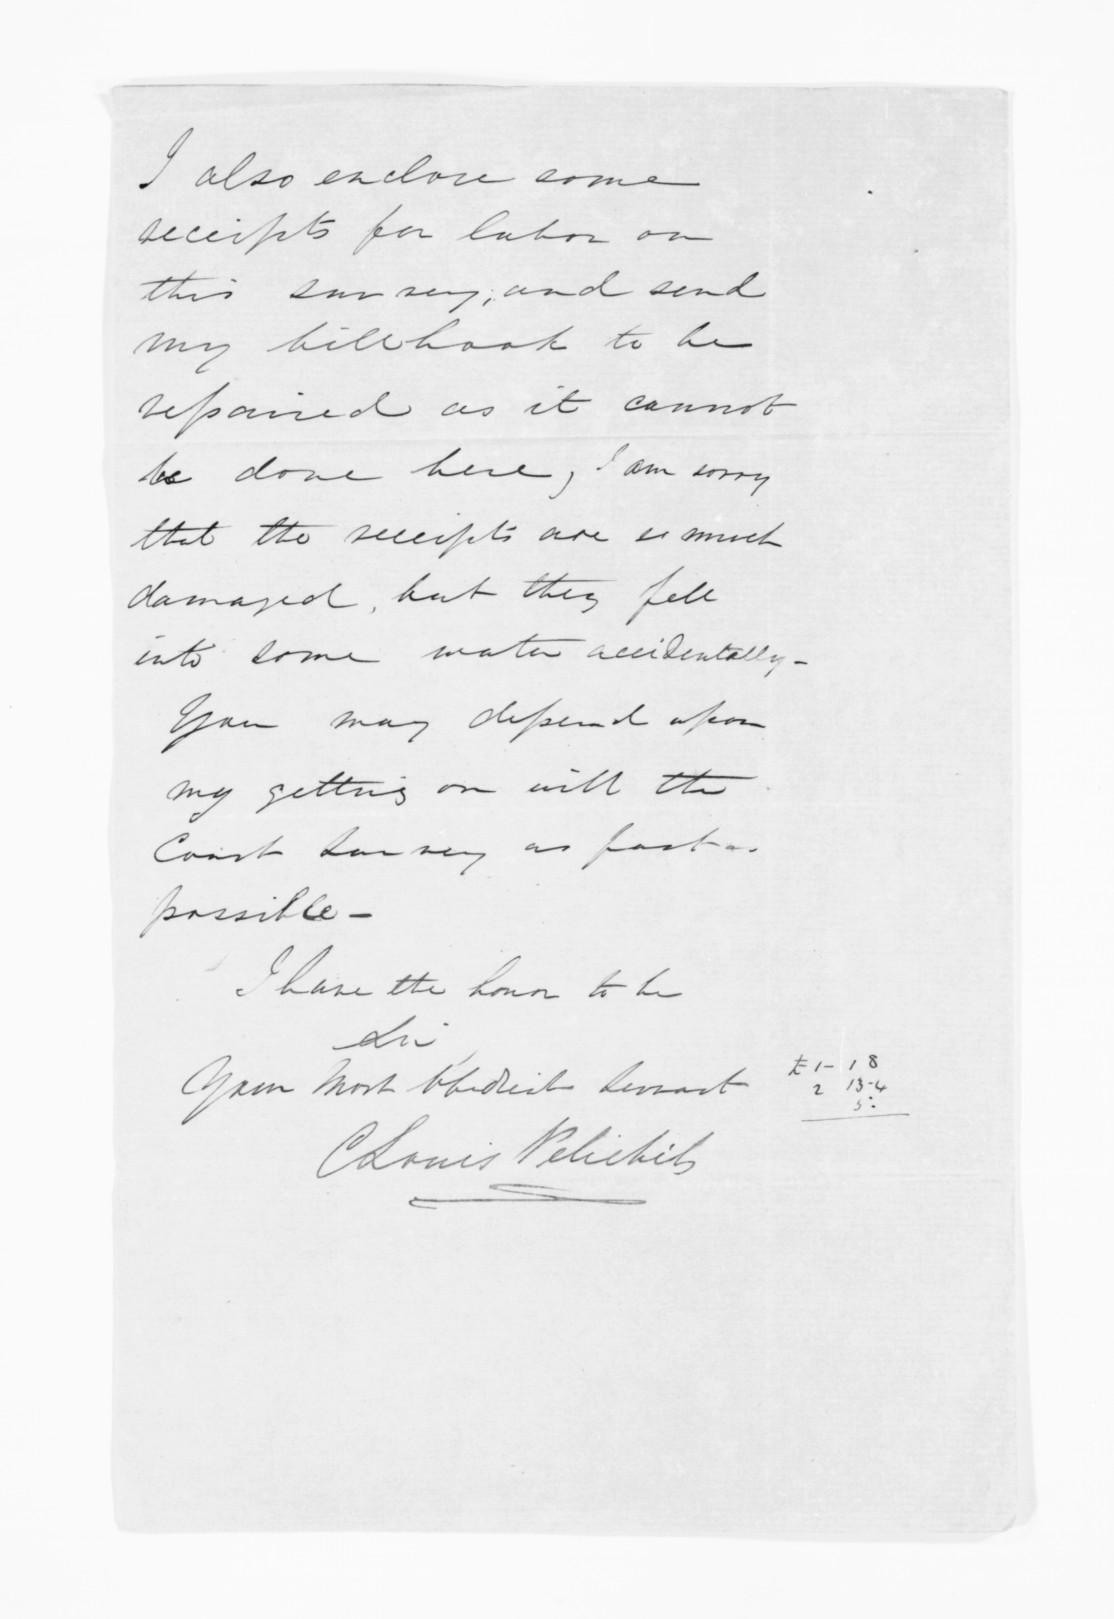 I also enclose some
receipts for labor on
this survey; and send
my billhook to be
repaired as it cannot
be done here, I am sorry
that the receipts are so much
damaged, but they fell
into some water accidentally-
You may depend upon
my getting on with the
Coast Survey as fast as
possible-
I have the honor to be
Sir
Your Most Obedient Servant
£ 1- 1 8
2 13-4
5:
C Louis Pelichet